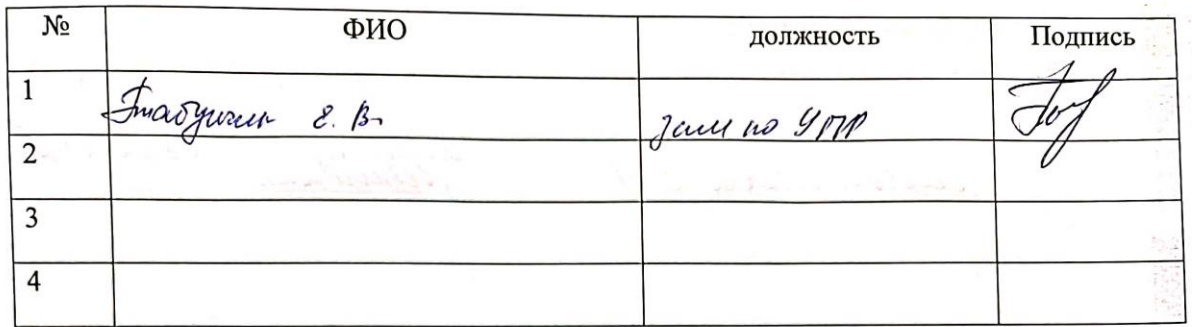 № ФИО должность Подпись
1 Е. В. зам по УПР
2
3
4